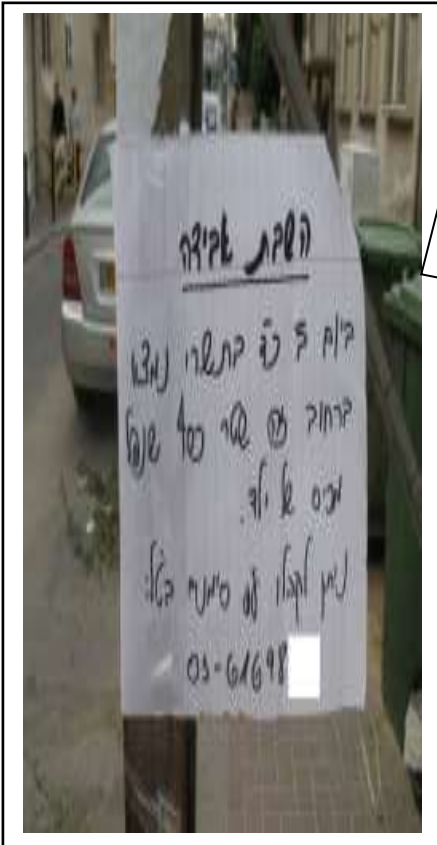 השבת אבידה
ביום ב כ בתשרי נמצא
ברחוב שטר כסף שנפל
מכיס של ילד.
ניתן לקבלו עפ סימנים בטל:
03-61698